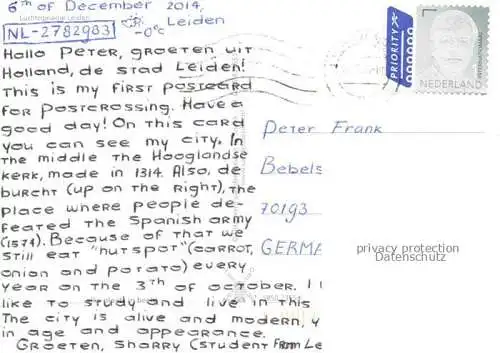 6th of December 2014,
Luchtopname Leiden
Leiden
NL-2782983
-0°c
Hallo Peter, groeten uit
Holland, de stad Leiden!
This is my first postcard
for Postcrossing. Have a
good day! On this card
you can see my city. In
the middle the Hooglandse
kerk, made in 1314. Also, de
burcht (up on the right), the
place where people de-
feated the Spanish army
(1574). Because of that we
still eat "hutspot" (carrot,
onion and potato) every
year on the 3th of october. I
like to study and live in this
The city is alive and modern,
in age and appearance.
Groeten, Sharry (student from Le
PRIORITY
NEDERLAND
INTERNATIONAAL
Peter Frank
Bebels
70193
GERMA
privacy protection
Datenschutz